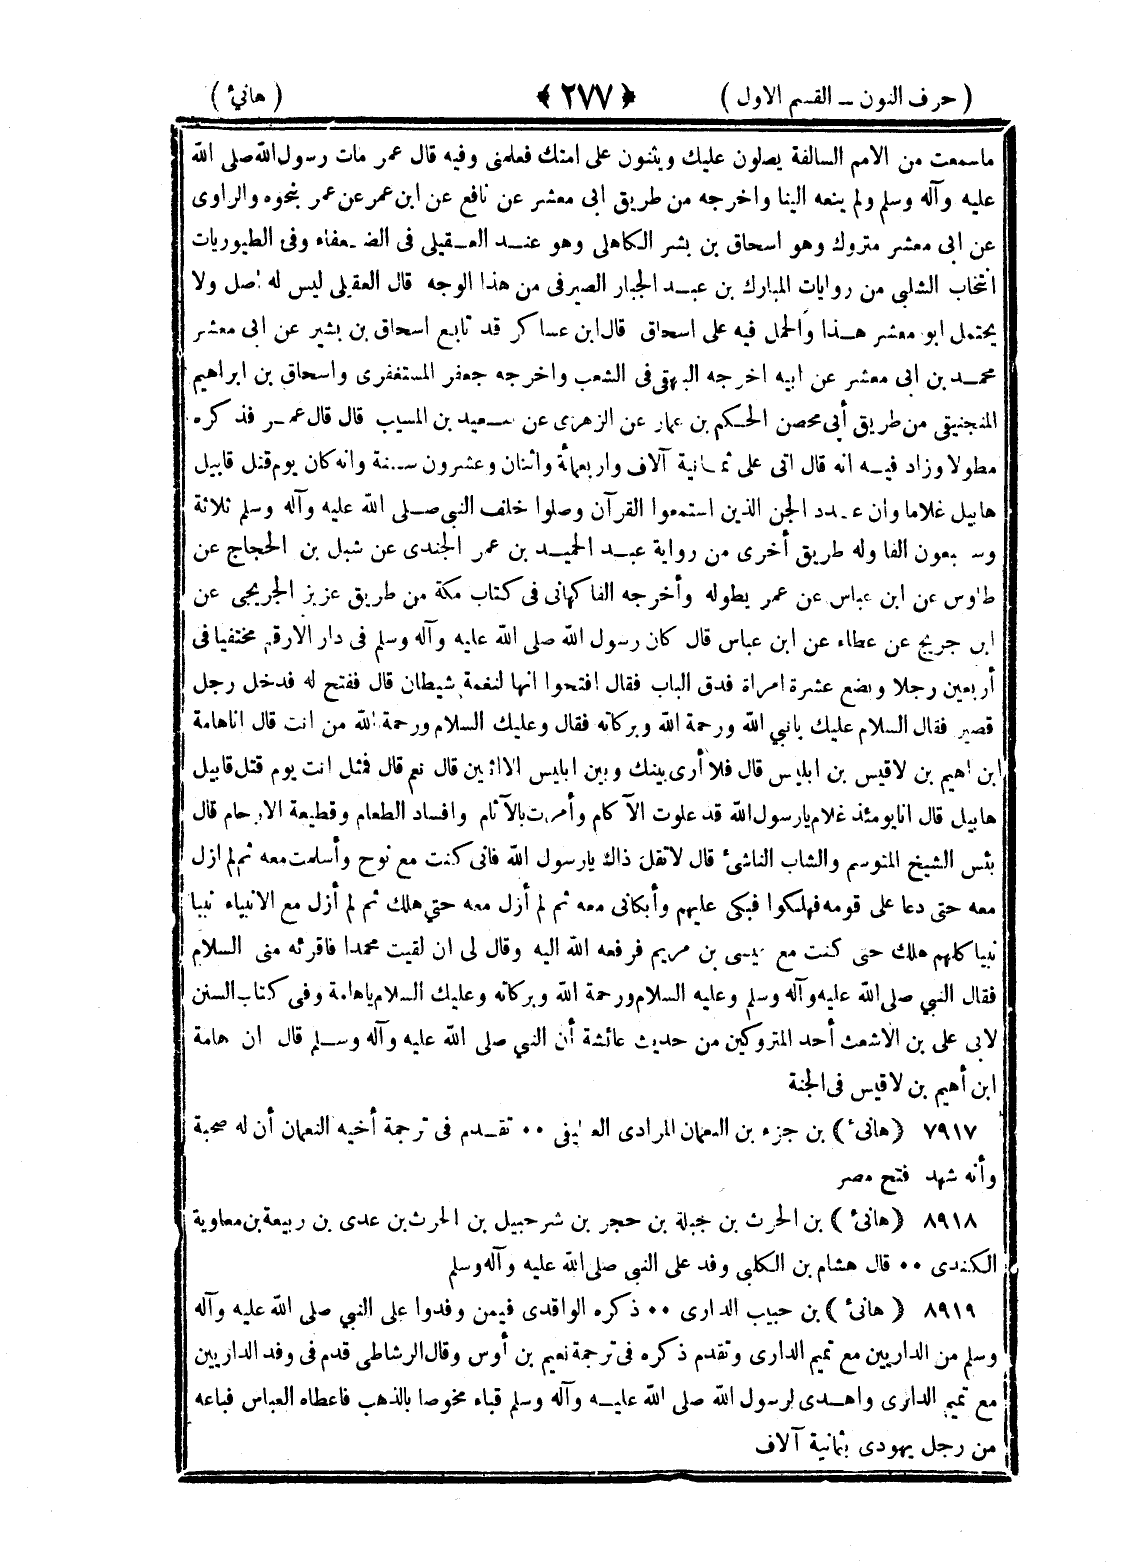 ( حرف النون ــ القسم الاول ) ﴿ ٢٧٧ ﴾ ( هانئ )
ماسمعت من الامم السالفة يصلون عليك ويثنون على امتك فعلمنى وفيه قال عمر مات رسول الله صلى الله
عليه وآله وسلم ولم ينعه الينا واخرجه من طريق ابى معشر عن نافع عن ابن عمر عن عمر بنحوه والراوى
عن ابى معشر متروك وهو اسحاق بن بشر الكاهلى وهو عند العقيلى فى الضعفاء وفى الطيوريات
انتخاب السلفى من روايات المبارك بن عبد الجبار الصيرفى من هذا الوجه قال العقيلى ليس له اصل ولا
يحتمل ابو معشر هذا والحمل فيه على اسحاق قال ابن عساكر قد تابع اسحاق بن بشير عن ابى معشر
محمد بن ابى معشر عن ابيه اخرجه البيهقى فى الشعب واخرجه جعفر المستغفرى واسحاق بن ابراهيم
المنجنيقى من طريق أبى محصن الحكم بن عمار عن الزهرى عن سعيد بن المسيب قال قال عمر فذكره
مطولا وزاد فيه انه قال اتى على ثمانية آلاف واربعمائة واثنان وعشرون سنة وانه كان يوم قتل قابيل
هابيل غلاما وان عدد الجن الذين استمعوا القرآن وصلوا خلف النبى صلى الله عليه وآله وسلم ثلاثة
وسبعون الفا وله طريق أخرى من رواية عبد الحميد بن عمر الجندى عن شبل بن الحجاج عن
طاوس عن ابن عباس عن عمر بطوله وأخرجه الفاكهانى فى كتاب مكة من طريق عزيز الجريجى عن
ابن جريج عن عطاء عن ابن عباس قال كان رسول الله صلى الله عليه وآله وسلم فى دار الارقم مختفيا فى
أربعين رجلا وبضع عشرة امراة فدق الباب فقال افتحوا انها لنغمة شيطان قال ففتح له فدخل رجل
قصير فقال السلام عليك يانبي الله ورحمة الله وبركاته فقال وعليك السلام ورحمة الله من انت قال اناهامة
ابن اهيم بن لاقيس بن ابليس قال فلا أرى بينك وبين ابليس الا اثنين قال نعم قال فمثل انت يوم قتل قابيل
هابيل قال انا يومئذ غلام يارسول الله قد علوت الآكام وأمرت بالآثام وافساد الطعام وقطيعة الارحام قال
بئس الشيخ المتوسم والشاب الناشئ قال لاتقل ذاك يارسول الله فانى كنت مع نوح وأسلمت معه ثم لم ازل
معه حتى دعا على قومه فهلكوا فبكى عليهم وأبكانى معه ثم لم أزل معه حتي هلك ثم لم أزل مع الانبياء نبيا
نبيا كلهم هلك حتى كنت مع عيسى بن مريم فرفعه الله اليه وقال لى ان لقيت محمدا فاقرئه منى السلام
فقال النبي صلى الله عليه وآله وسلم وعليه السلام ورحمة الله وبركاته وعليك السلام ياهامة وفى كتاب السنن
لابى على بن الاشعث أحد المتروكين من حديث عائشة أن النبي صلى الله عليه وآله وسلم قال ان هامة
ابن أهيم بن لاقيس فى الجنة
٧٩١٧ (هانئ) بن جزء بن النعمان المرادى الغطيفى ٠٠ تقدم فى ترجمة أخيه النعمان أن له صحبة
وأنه شهد فتح مصر
٨٩١٨ (هانئ) بن الحرث بن جبلة بن حجر بن شرحبيل بن الحرث بن عدى بن ربيعة بن معاوية
الكندى ٠٠ قال هشام بن الكلبى وفد على النبى صلى الله عليه وآله وسلم
٨٩١٩ (هانئ) بن حبيب الدارى ٠٠ ذكره الواقدى فيمن وفدوا على النبي صلى الله عليه وآله
وسلم من الداريين مع تميم الدارى وتقدم ذكره فى ترجمة نعيم بن أوس وقال الرشاطى قدم فى وفد الداريين
مع تميم الدارى واهدى لرسول الله صلى الله عليه وآله وسلم قباء مخوصا بالذهب فاعطاه العباس فباعه
من رجل يهودى بثمانية آلاف